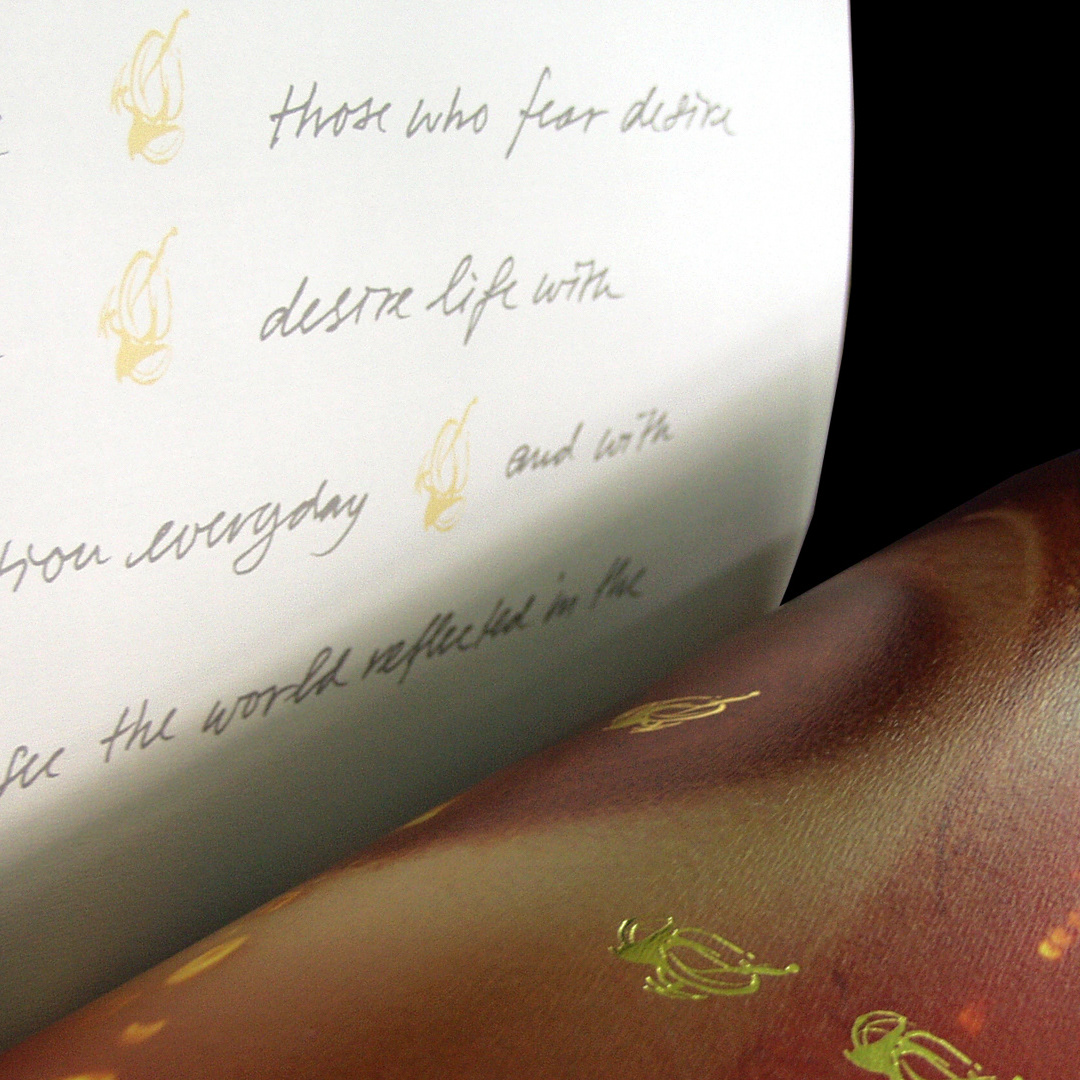 those who fear desire
desire life with
tion everyday and with
see the world reflected in the